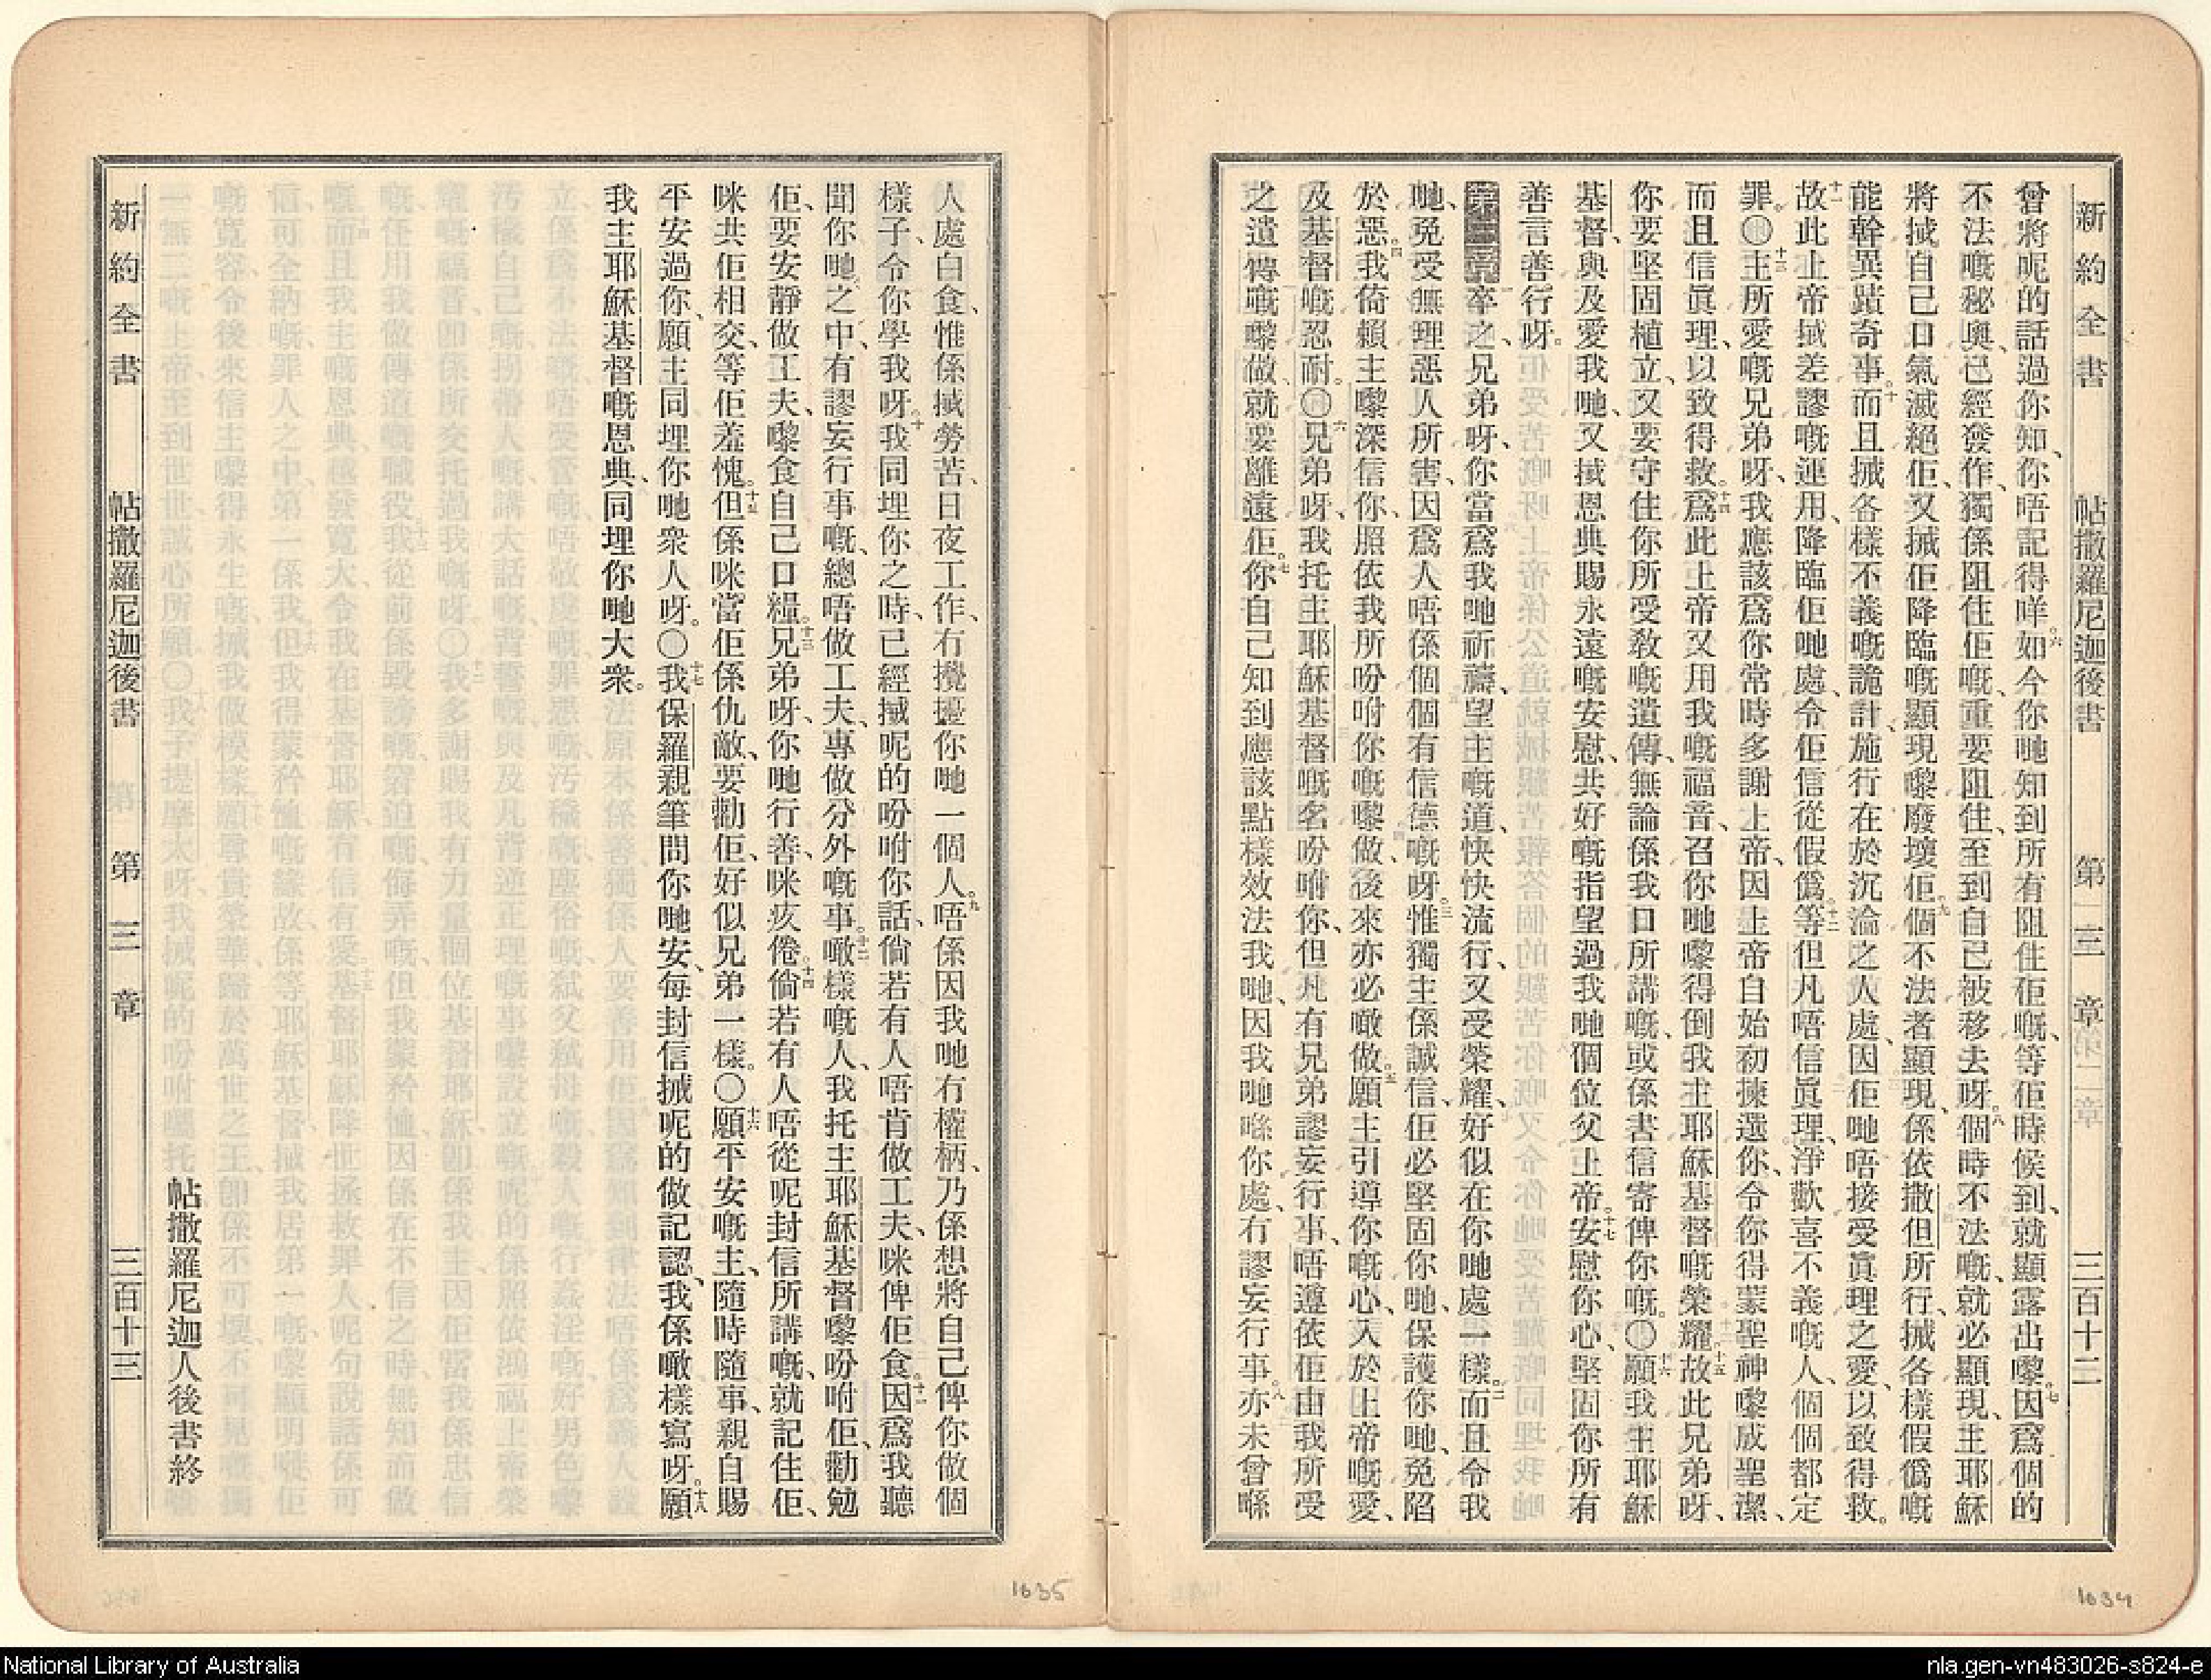 新約全書 帖撒羅尼迦後書 第三章 三百十二
曾將呢的話過你知、你唔記得咩。六如今你哋知到所有阻住佢嘅、等佢時候到、就顯露出嚟。七因爲個的
不法嘅秘奧、已經發作、獨係阻住佢嘅、重要阻住、至到自己被移去呀。八個時不法嘅、就必顯現、主耶穌
將搣自己口氣滅絕佢、又搣佢降臨嘅顯現嚟廢壞佢。九個不法者顯現、係依撒但所行、搣各樣假僞嘅
能幹異蹟奇事。十而且搣各樣不義嘅詭計、施行在於沉淪之人處、因佢哋唔接受眞理之愛、以致得救。
十一故此上帝搣差謬嘅運用、降臨佢哋處、令佢信從假僞。十二等但凡唔信眞理、淨歡喜不義嘅人、個個都定
罪。〇十三主所愛嘅兄弟呀、我應該爲你常時多謝上帝、因上帝自始初揀選你、令你得蒙聖神嚟成聖潔、
而且信眞理、以致得救。十四爲此上帝又用我嘅福音、召你哋嚟得倒我主耶穌基督嘅榮耀。十五故此兄弟呀、
你要堅固植立、又要守住你所受敎嘅遺傳、無論係我口所講嘅、或係書信寄俾你嘅。〇十六願我主耶穌
基督、與及愛我哋、又搣恩典賜永遠嘅安慰、共好嘅指望過我哋個位父上帝。十七安慰你心、堅固你所有
善言善行呀。
第三章 一卒之、兄弟呀、你當爲我哋祈禱、望主嘅道、快快流行、又受榮耀、好似在你哋處一樣。二而且令我
哋、免受無理惡人所害、因爲人唔係個個有信德嘅呀。三惟獨主係誠信、佢必堅固你哋、保護你哋、免陷
於惡。四我倚賴主嚟深信你、照依我所吩咐你嘅嚟做、後來亦必噉做。五願主引導你嘅心、入於上帝嘅愛、
及基督嘅忍耐。〇六兄弟呀、我托主耶穌基督嘅名吩咐你、但凡有兄弟謬妄行事、唔遵依佢由我所受
之遺傳嘅嚟做、就要離遠佢。七你自己知到應該點樣效法我哋、因我哋喺你處、冇謬妄行事。八亦未曾喺
人處白食、惟係搣勞苦、日夜工作、冇攪擾你哋一個人。九唔係因我哋冇權柄、乃係想將自己俾你做個
樣子、令你學我呀。十我同埋你之時、已經搣呢的吩咐你話、倘若有人唔肯做工夫、咪俾佢食。十一因爲我聽
聞你哋之中、有謬妄行事嘅、總唔做工夫、專做分外嘅事。十二噉樣嘅人、我托主耶穌基督嚟吩咐佢、勸勉
佢、要安靜做工夫、嚟食自己口糧。十三兄弟呀、你哋行善、咪疚倦。十四倘若有人唔從呢封信所講嘅、就記住佢、
咪共佢相交、等佢羞愧。十五但係咪當佢係仇敵、要勸佢、好似兄弟一樣。〇十六願平安嘅主、隨時隨事、親自賜
平安過你、願主同埋你哋衆人呀。〇十七我保羅親筆問你哋安、每封信搣呢的做記認、我係噉樣寫呀。十八願
我主耶穌基督嘅恩典、同埋你哋大衆。
帖撒羅尼迦人後書終
新約全書 帖撒羅尼迦後書 第三章 三百十三
1634
1635
National Library of Australia
nla.gen-vn483026-s824-e